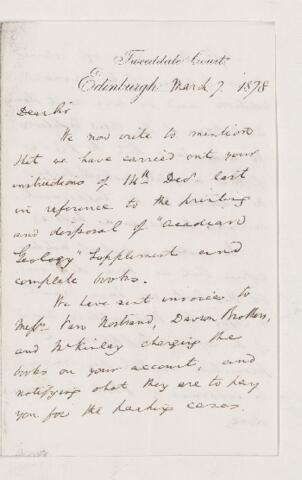 Tweeddale Court
Edinburgh March 7. 1878
Dear Sir
We now write to mention
that we have carried out your
instructions of 14th Decr. last
in reference to the printing
and disposal of "Acadian
Geology" Supplement and
complete books.
We have sent invoices to
Messrs. Van Nostrand, Dawson Brothers,
and McKinlay charging the
books on your account, and
notifying what they are to pay
you for the packing cases.